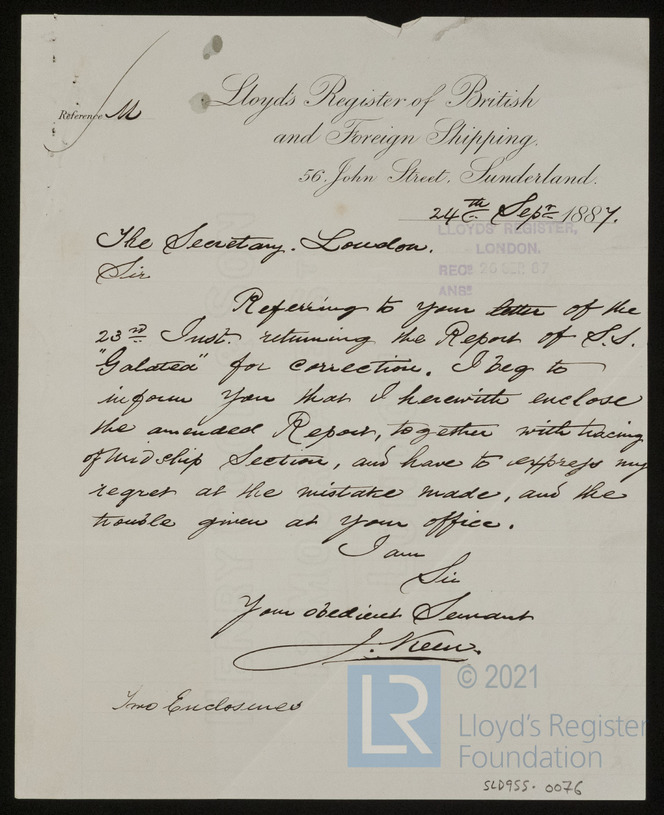 Lloyd's Register of British
and Foreign Shipping.
56, John Street, Sunderland.
Reference M
24th Sepr 1887.
LLOYDS REGISTER,
LONDON.
RECD 26 SEP 87
ANSD
The Secretary. London.
Sir
Referring to your letter of the
23rd Inst. returning the Report of S.S.
"Galatea" for correction. I beg to
inform you that I herewith enclose
the amended Report, together with tracing
of Midship Section, and have to express my
regret at the mistake made, and the
trouble given at your office.
I am
Sir
Your obedient Servant
J. Keen.
Two Enclosures
LR
© 2021
Lloyd's Register
Foundation
SLD955-0076